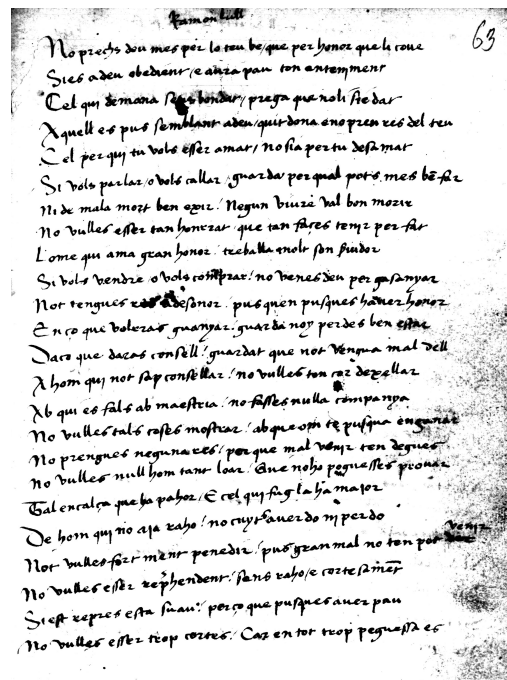 Ramon lull
63
No prechs dou mes per lo teu be, que per honor que li coue
Sies a deu obedient / e aura pau ton enteniment
Cel qui demana sens bondat / prega que noli sie dat
Aquell es pus semblant a deu / quit dona eno pren res del teu
Cel per qui tu vols esser amat / no sia per tu desamat
Si vols parlar / o vols callar / guarda per qual pots mes be far
Ni de mala mort ben exir / Negun viure val bon morir
No vulles esser tan honrat / que tan faces tenir per fat
L'ome qui ama gran honor / treballa molt son
Si vols vendre o vols comprar / no venes deu per gasanyar
Not tengues a desonor / pus quen pusques hauer honor
En ço que volras guanyar / guarda noy perdes ben estar
Daço que daras consell / guardat que not vengua mal dell
A hom qui not sap consellar / no vulles ton cor dexellar
Ab qui es fals ab maestria / no fasses nulla companya
No vulles tals coses mostrar / ab que om te pusqua enganar
No prengues neguna res / per que mal venir ten degues
No vulles null hom tant loar / Que noho poguesses prouar
Tal encalça que ha pahor / E cel qui fug la ha major
De hom qui no aja raho / no cuyts auer do ni perdo
Not vulles fort ment penedir / pus gran mal no ten pot venir
No vulles esser reprehendent / sens raho / e cortesament
Si est repres esta suau / perço que pusques auer pau
No vulles esser trop cortes / Car en tot trop peguessa es